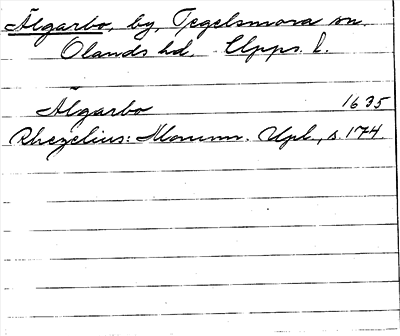 Älgarbo, by, Tegelsmora sn.
Olands hd. Upps. l.
Älgarbo 1635
Rhezelius: Monum. Upl., s. 174.